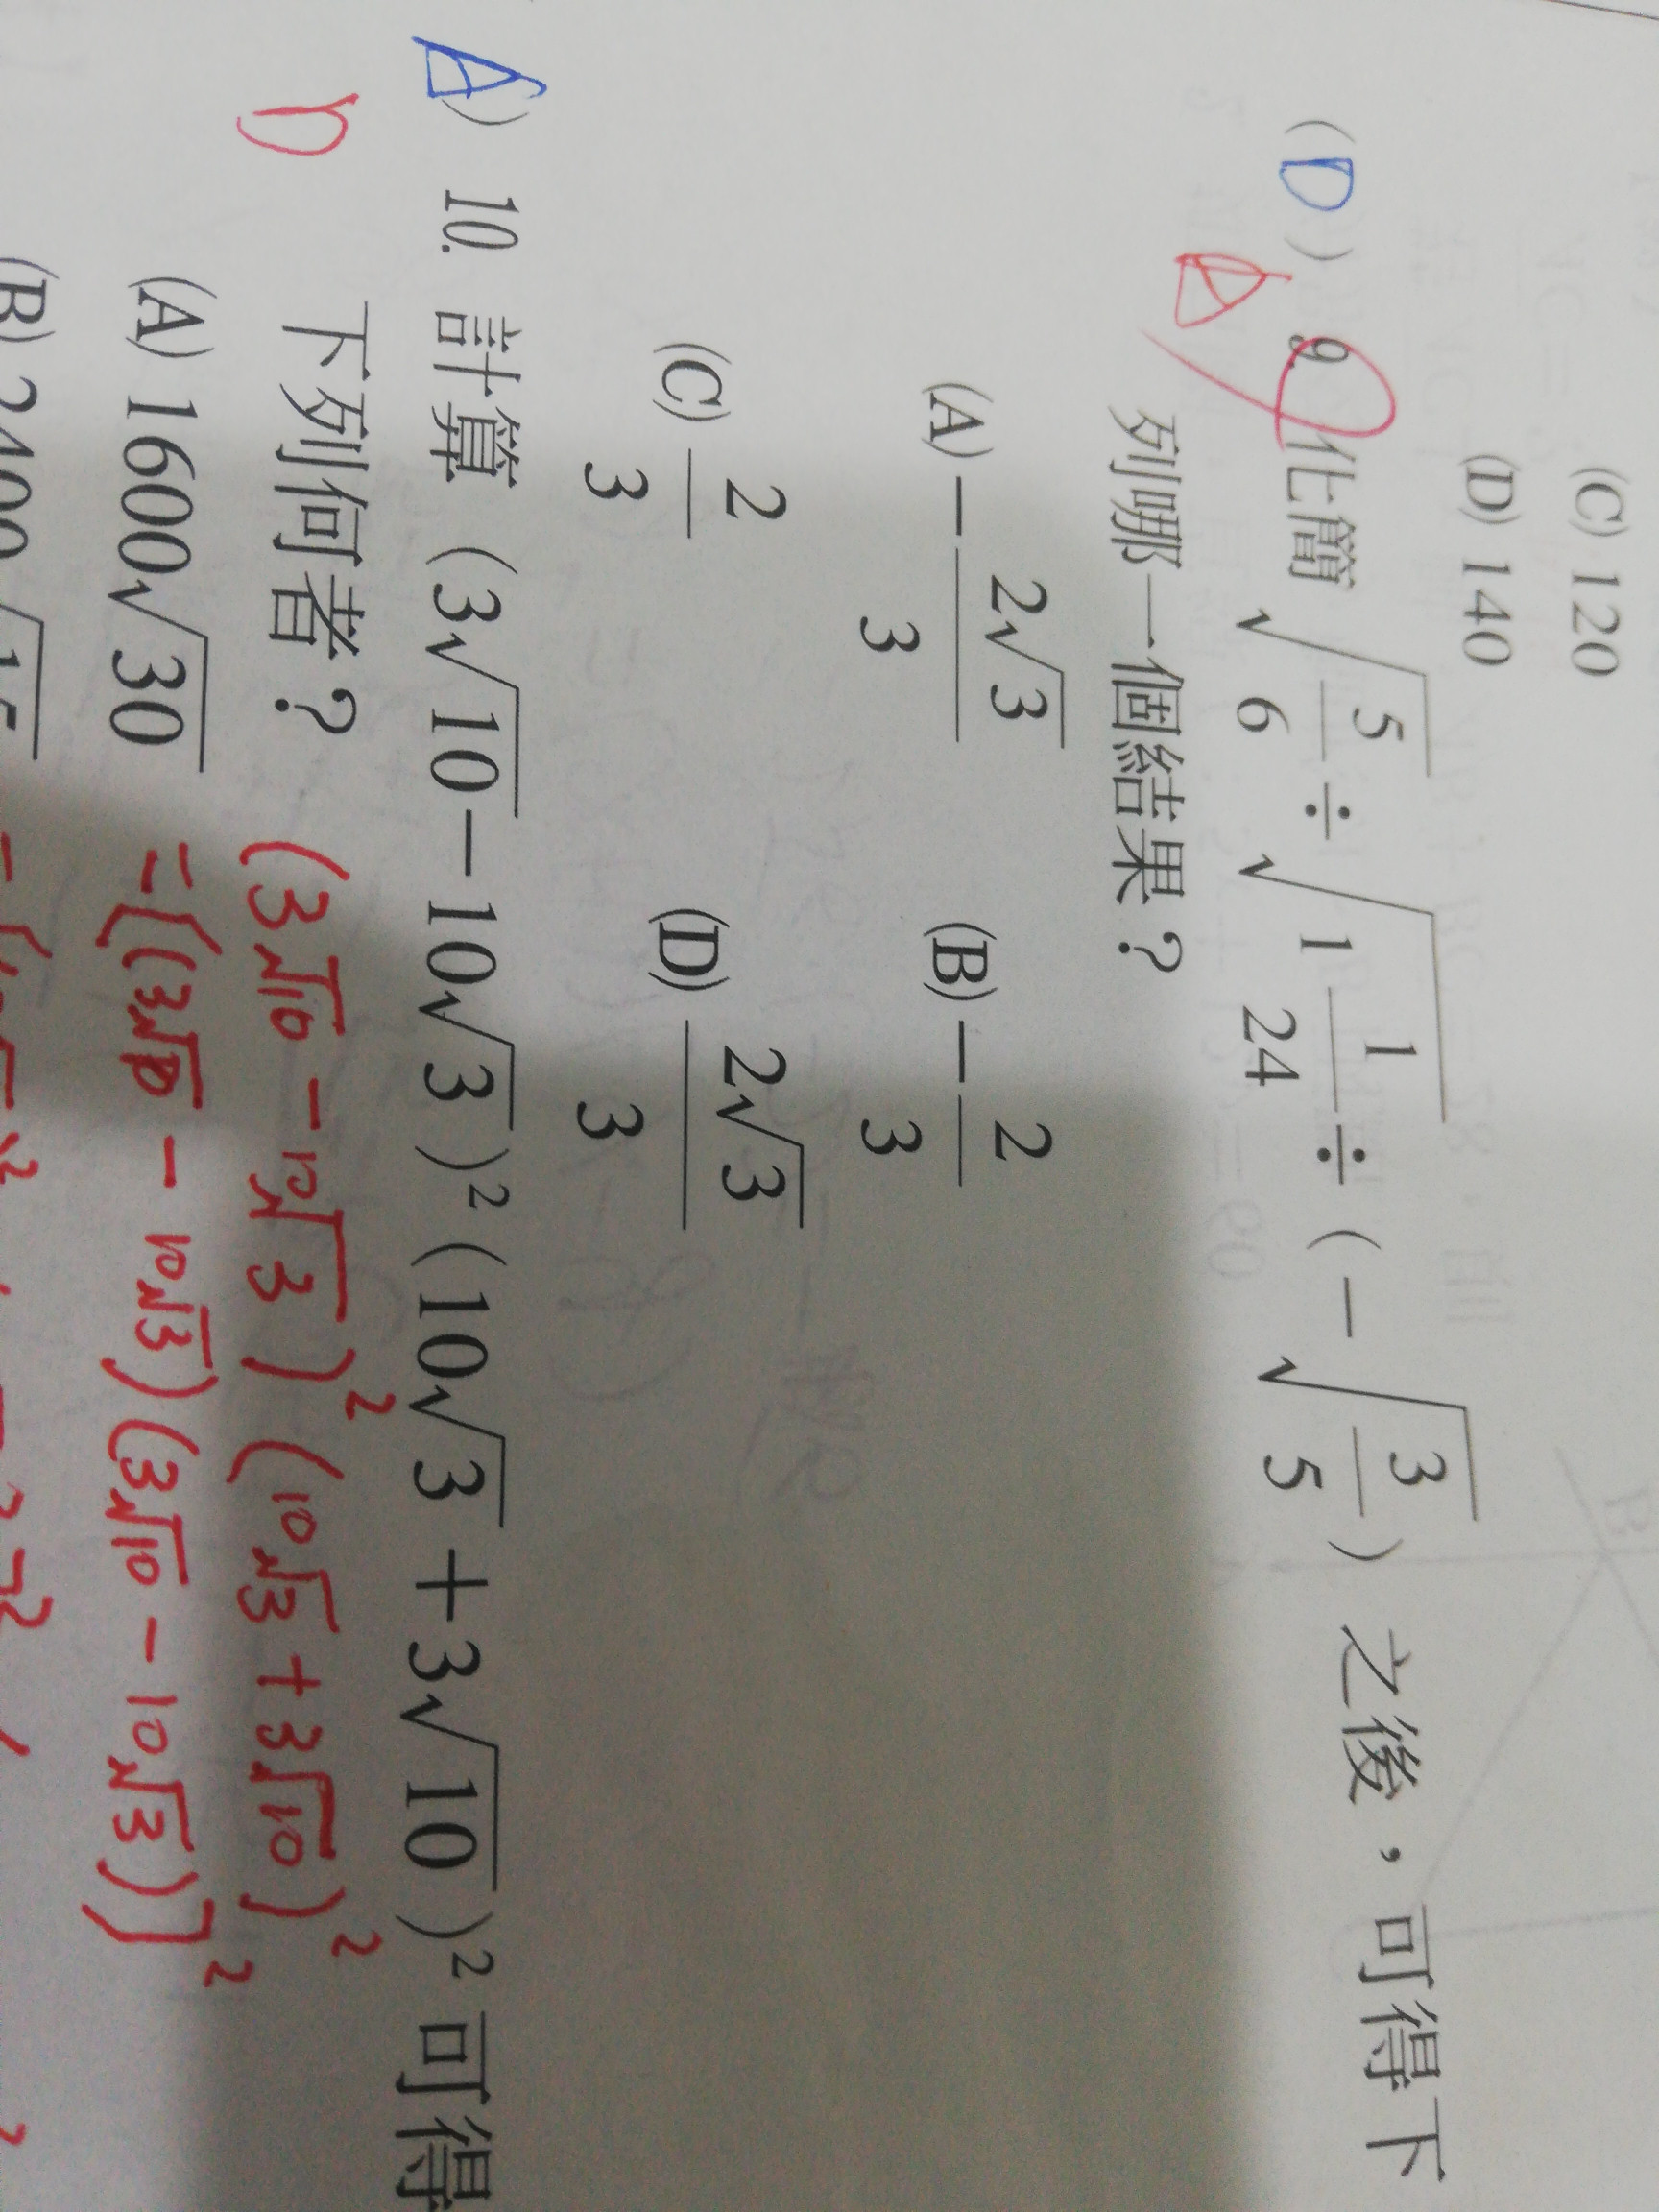 (C) 120
(D) 140
( D ) 9. 化簡 √(5/6) ÷ √(1 1/24) ÷ ( − √(3/5) ) 之後，可得下
A
列哪一個結果？
(A) − 2√3/3 (B) − 2/3
(C) 2/3 (D) 2√3/3
A ) 10. 計算 ( 3√10 − 10√3 )² ( 10√3 + 3√10 )² 可得
D
下列何者？
(3√10 − 10√3)² (10√3 + 3√10)²
(A) 1600√30 = [(3√10 − 10√3)(3√10 − 10√3)]²
(B) 2400√15